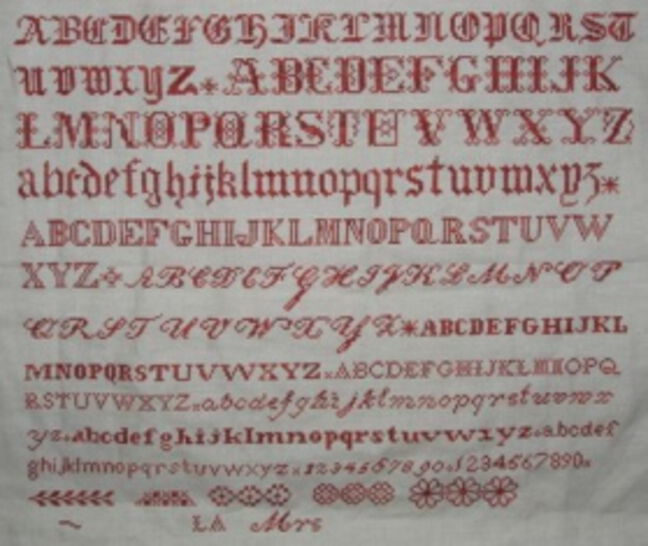 ABCDEFGHIJKLMNOPQRST
uvwxyz*ABCDEFGHIJK
LMNOPQRSTUVWXYZ
abcdefghijklmnopqrstuvwxyz*
ABCDEFGHIJKLMNOPQRSTUVW
XYZ*ABCDEFGHIJKLMNOP
QRSTUVWXYZ*ABCDEFGHIJKL
MNOPQRSTUVWXYZ*ABCDEFGHIJKLMNOPQ
RSTUVWXYZ*abcdefghijklmnopqrstuvwx
yz*abcdefghijklmnopqrstuvwxyz*abcdef
ghijklmnopqrstuvwxyz*1234567890*1234567890*
LA Mrs